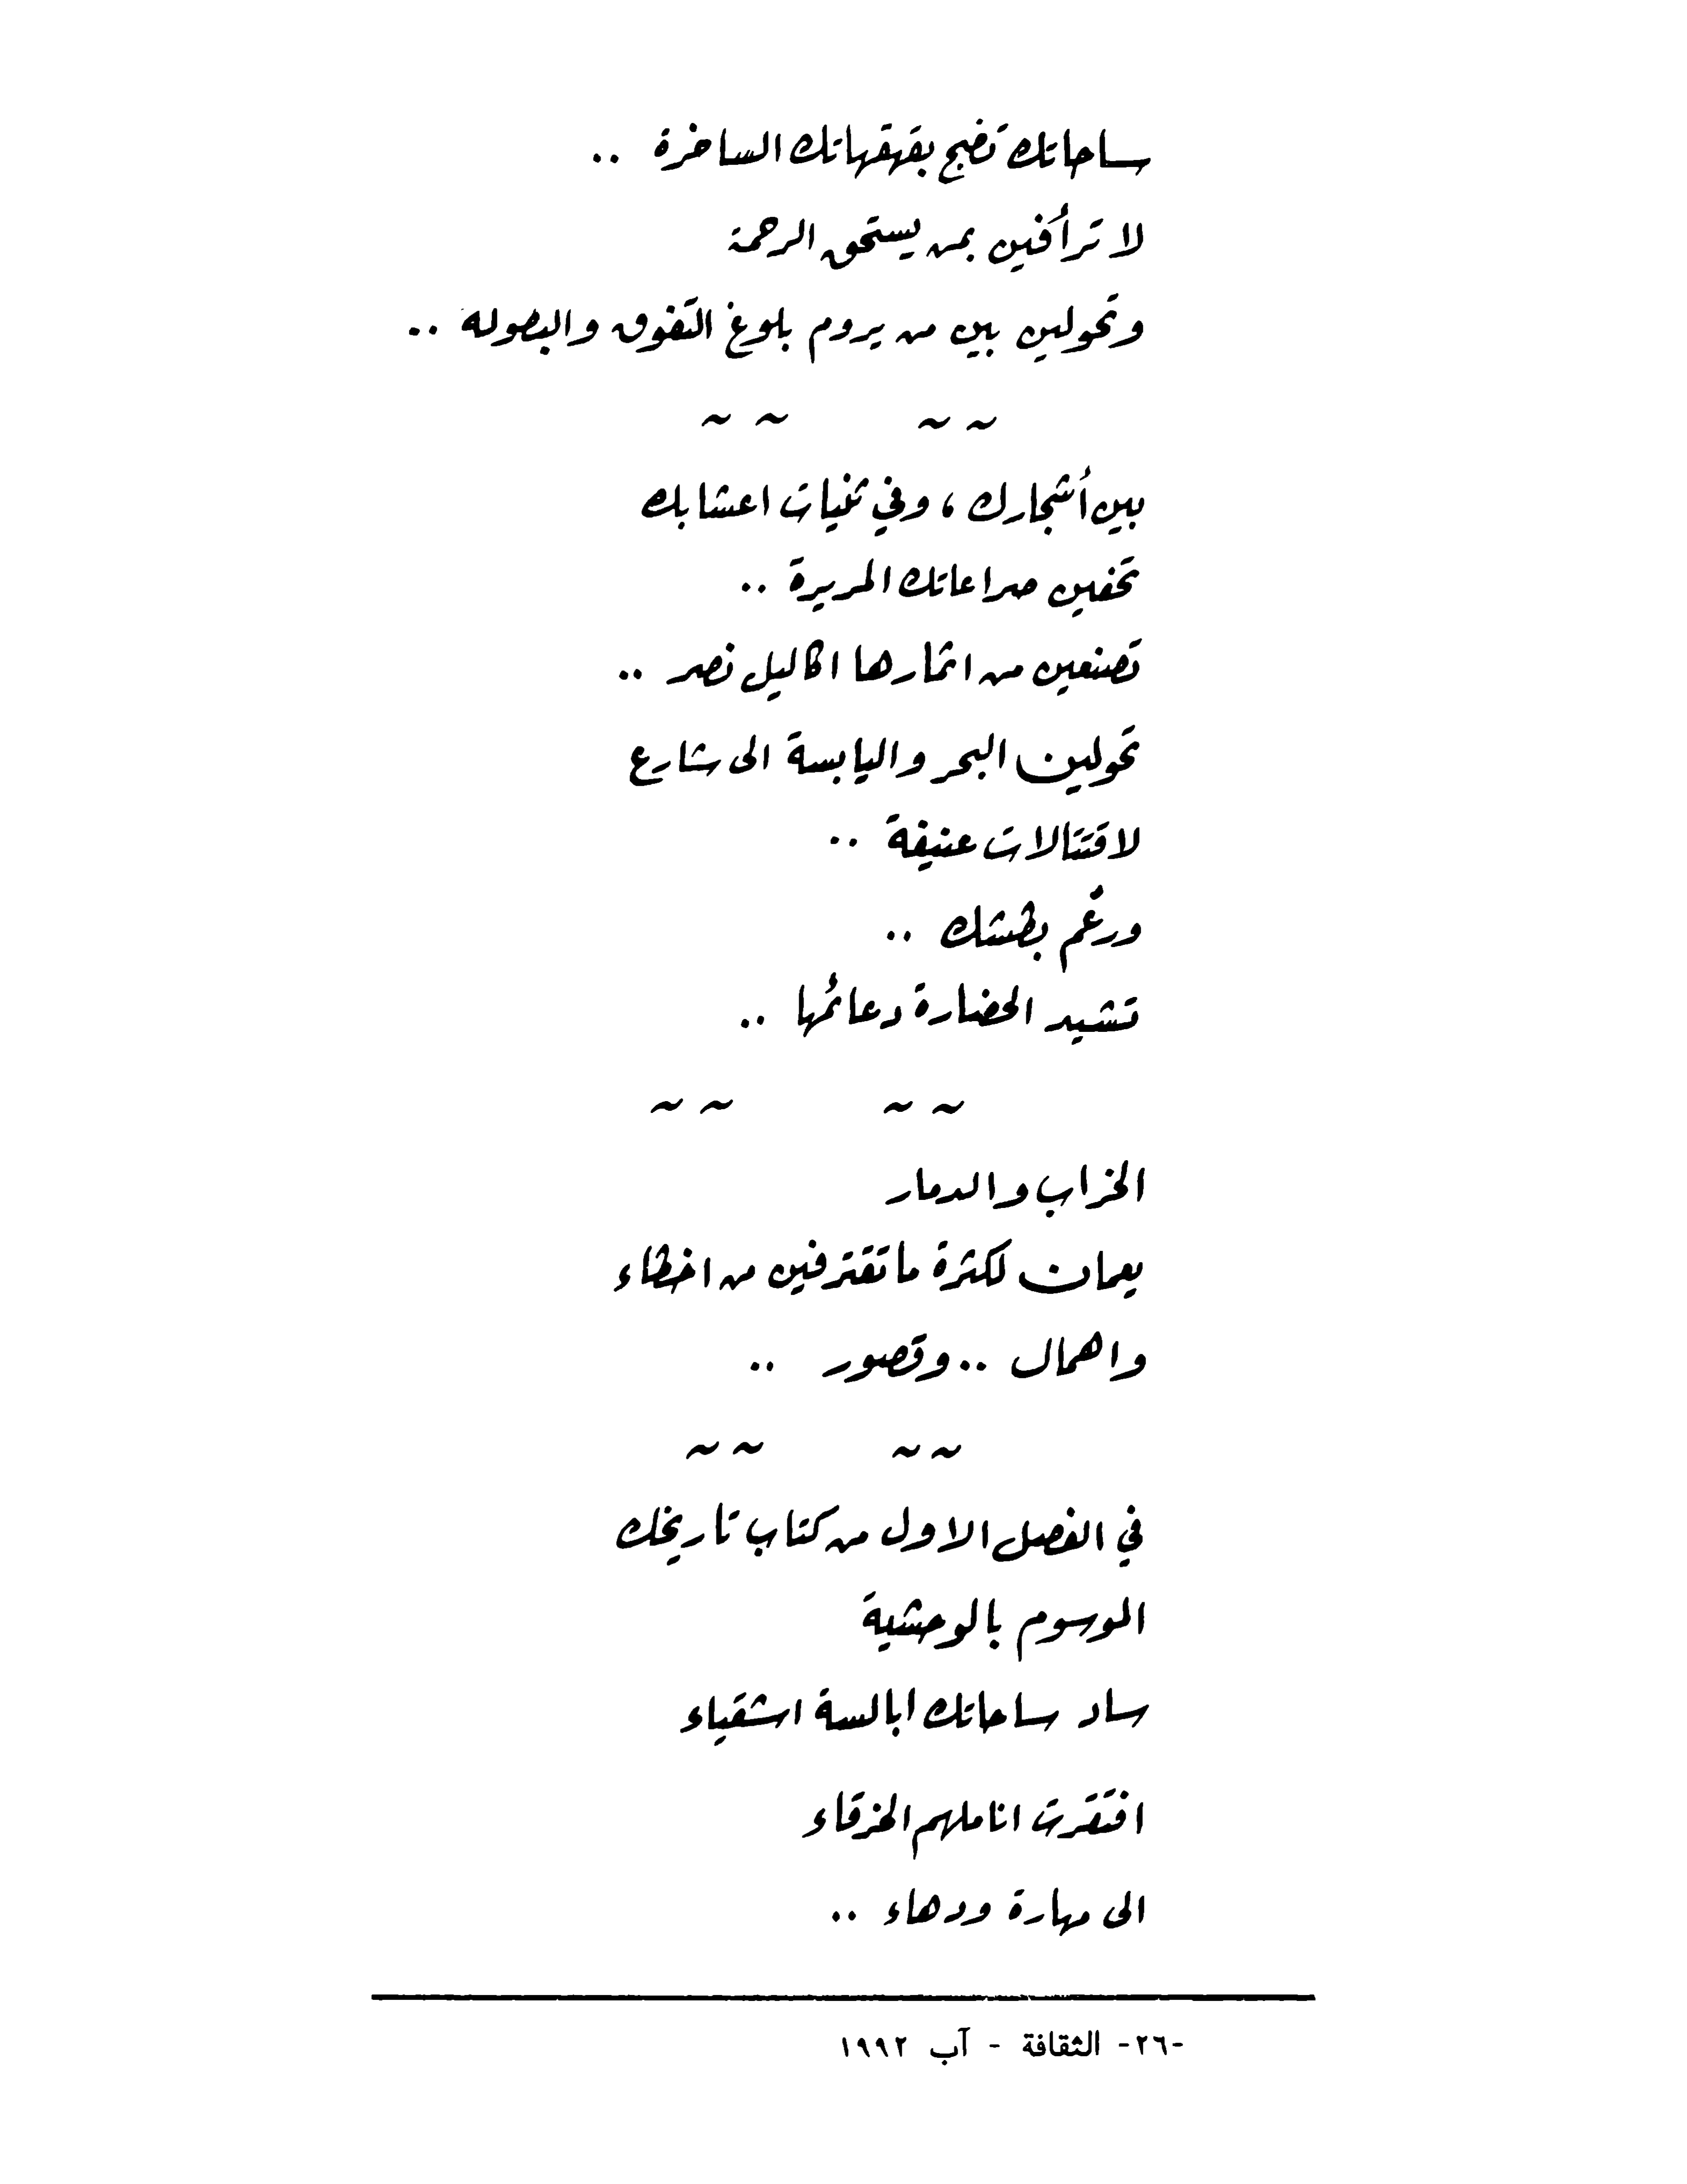 ساحاتك تضج بقهقهاتك الساخرة ..
لا ترأفين بمن يستحق الرحمة
وتحولين بين من يروم بلوغ التفوق والبصوله ..
~ ~ ~ ~
بين أشجارك ، وفي ثنيات اعشابك
تخفين صراعاتك المريرة ..
تصنعين من اثمارها اكاليل نصر ..
تحولين البحر واليابسة الى شارع
لاقتتالات عنيفة ..
ورغم بطشك ..
تشيد الحضارة دعائمها ..
~ ~ ~ ~
الخراب والدمار
يعمان لكثرة ما تقترفين من اخطاء
واهمال .. وقصور ..
~ ~ ~ ~
في الفصل الاول من كتاب تاريخك
الموسوم بالوحشية
ساد ساحاتك ابالسة اشقياء
افتقرت اناملهم الخرقاء
الى مهارة ودهاء ..
-٢٦- الثقافة - آب ١٩٩٢